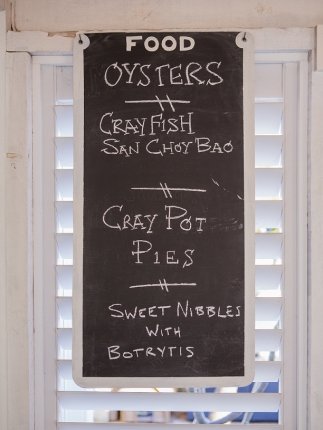 FOOD
OYSTERS
CRAYFISH
SAN CHOY BAO
CRAY POT
PIES
SWEET NIBBLES
WITH
BOTRYTIS